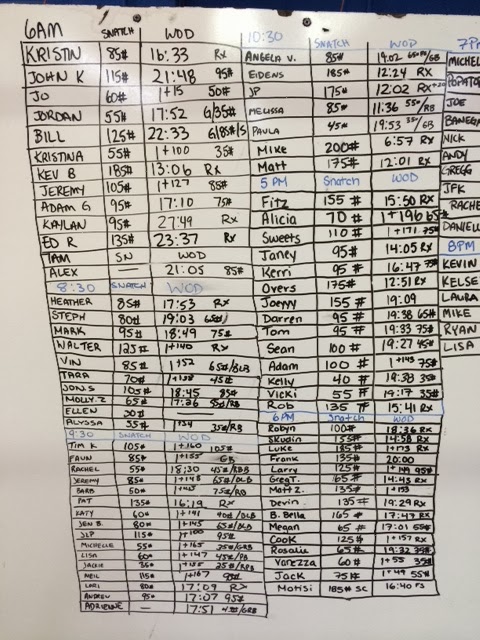 6AM SNATCH WOD
KRISTIN 85# 16:33 RX
JOHN K 115# 21:48 95#
JO 60# 1+15 50#
JORDAN 55# 17:52 G/35#
BILL 125# 22:33 G/85#/S
KRISTINA 55# 1+100 35#
KEV B 185# 13:06 RX
JEREMY 105# 1+127 85#
ADAM G 95# 17:10 75#
KAYLAN 95# 27:49 RX
ED R 135# 23:37 RX
7AM SN WOD
ALEX 21:05 85#
8:30 SNATCH WOD
HEATHER 85# 17:53 RX
STEPH 80# 19:03 65#
MARK 95# 18:49 75#
WALTER 125# 1+140 RX
VIN 85# 1+52 65#/BLB
TARA 70# 45#
JON S 105# 18:45 85#
MOLLY.Z 65# 17:36 55#/RB
ELLEN 30#
ALYSSA 55# 1+34 35#/RB
9:30 SNATCH WOD
TIM K 105# 1+160 105#
FAUN 85# 1+155
RACHEL 55# 18:30 45#/RDB
JEREMY 85# 1+145 65#/BLB
BARB 50#
PAT 135# 16:19 RX
KATY 60# 1+141 40#/BLB
JEN B. 80# 1+145 65#/BLB
JLP 115# 1+100 95#
MICHELLE 55# 1+165 35#/GRB
LISA 60# 1+147 45#/PB
JACKIE 35# 1+155
NEIL 115# 1+167 95#
LORI 80# 17:09 RX
ANDREW 95# 17:07 95#
ADRIENNE — 17:51
10:30 SNATCH WOD
ANGELA V. 85# 19:02
EIDENS 185# 12:24 RX
JP 175# 12:02 RX+20
MELISSA 85# 11:36 55#/RB
PAULA 45# 19:53 35#/GB
MIKE 200# 6:57 RX
MATT 175# 12:01 RX
5 PM Snatch WOD
Fitz 155# 15:50 RX
Alicia 70# 1+196 65#
Sweets 110# 1+171 75#
Janey 95# 14:05 RX
Kerri 95# 16:47 75#
Overs 175# 12:51 RX
Joeyy 155# 19:09
Darren 95# 19:38 65#
Tom 95# 19:33 75#
Sean 100# 19:27 45#
Adam 100# 1+143 75#
Kelly 40# 19:38 35#
Vicki 55# 19:17 35#
Rob 135# 15:41 RX
6 PM Snatch WOD
Robyn 100# 18:36 RX
Skudin 155# 14:58 RX
Luke 185# 1+173 RX
Frank 135# 20:00
Larry 125# 1+149 95#
Greg T. 165# 14:43 RX
Matt Z. 135# 1+153
Devin 135# 19:29 RX
B. Bella 165# 17:47 RX
Megan 65# 17:01 55#
Cook 125# 1+157 RX
Rosalie 65# 19:32
Vanezza 60# 1+55 35#
Jack 75# 1+49 55#
Motisi 185# SC 16:40
7P
MICHEL
POPATO
JOE
BANEG
NICK
ANDY
GREGG
JFK
RACHE
DANIEL
8PM
KEVIN
KELSE
LAURA
MIKE
RYAN
LISA